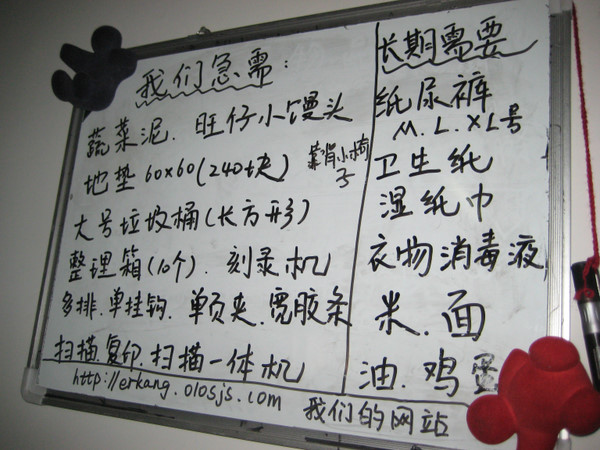 我们急需：
蔬菜泥. 旺仔小馒头
地垫 60x60(240块)
靠背小椅
子
大号垃圾桶(长方形)
整理箱(10个). 刻录机
多排.单挂钩. 单页夹.宽胶条
扫描.复印.扫描一体机
http://erkang.01osjs.com
我们的网站
长期需要
纸尿裤
M. L. XL号
卫生纸
湿纸巾
衣物消毒液
米. 面
油. 鸡蛋